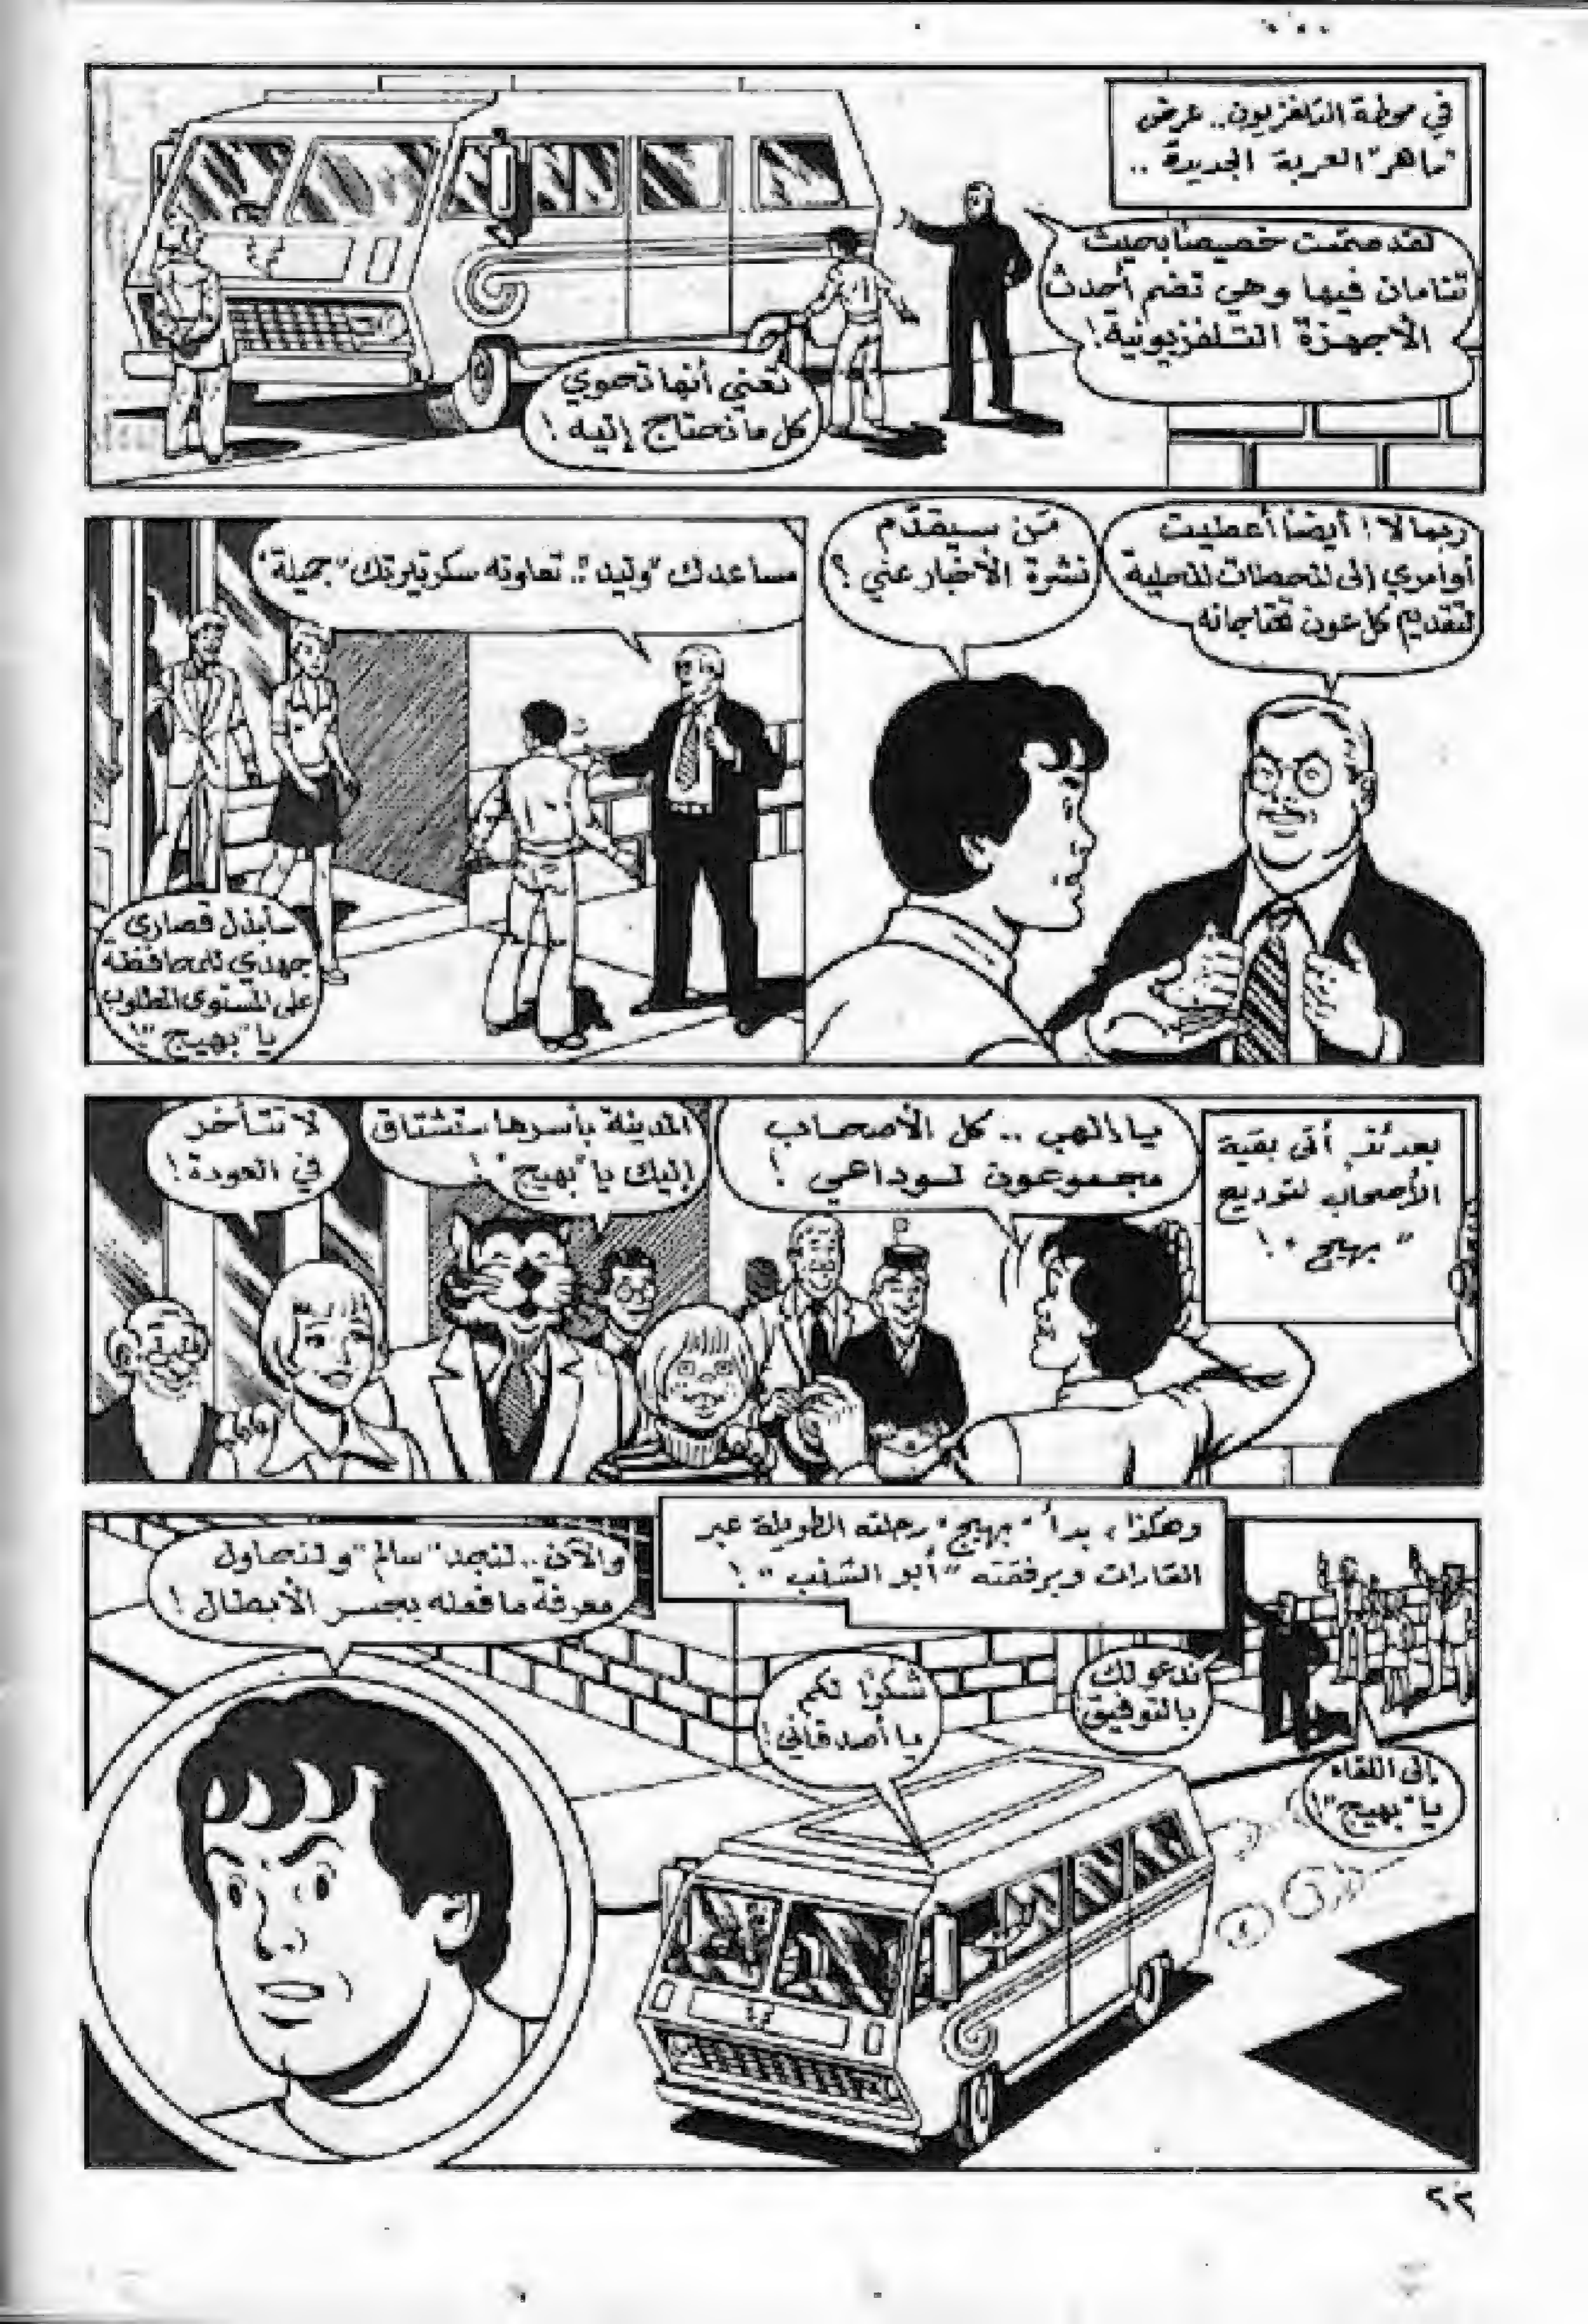 في محطة التلفزيون.. عرض
"ماهر" العربة الجديدة ..
لقد صممت خصيصًا بحيث
تنامان فيها وهي تضم أحدث
الأجهزة التلفزيونية!
تعني أنها تحوي
كل ما نحتاج إليه!
ربما لا! أيضًا أعطيت
أوامري إلى المحطات المحلية
لتقديم كل عون تحتاجانه
من سيقدّم
نشرة الأخبار عني؟
مساعدك "وليد".. تعاونه سكرتيرتك "جميلة"
سأبذل قصارى
جهدي للمحافظة
على المستوى المطلوب
يا "بهيج"!
بعدئذٍ أتى بقية
الأصحاب لتوديع
"بهيج"!
يا إلهي .. كل الأصحاب
مجموعون لوداعي!
المدينة بأسرها ستشتاق
إليك يا "بهيج"!
لا تتأخر
في العودة!
وهكذا، بدأ "بهيج" رحلته الطويلة عبر
القارات وبرفقته "أبو الشنب"!
ندعو لك
بالتوفيق
إلى اللقاء
يا "بهيج"!
شكرًا لكم
يا أصدقائي!
والآن.. لنجد "سالم" ولنحاول
معرفة ما فعله بجسر الأبطال!
٢٣